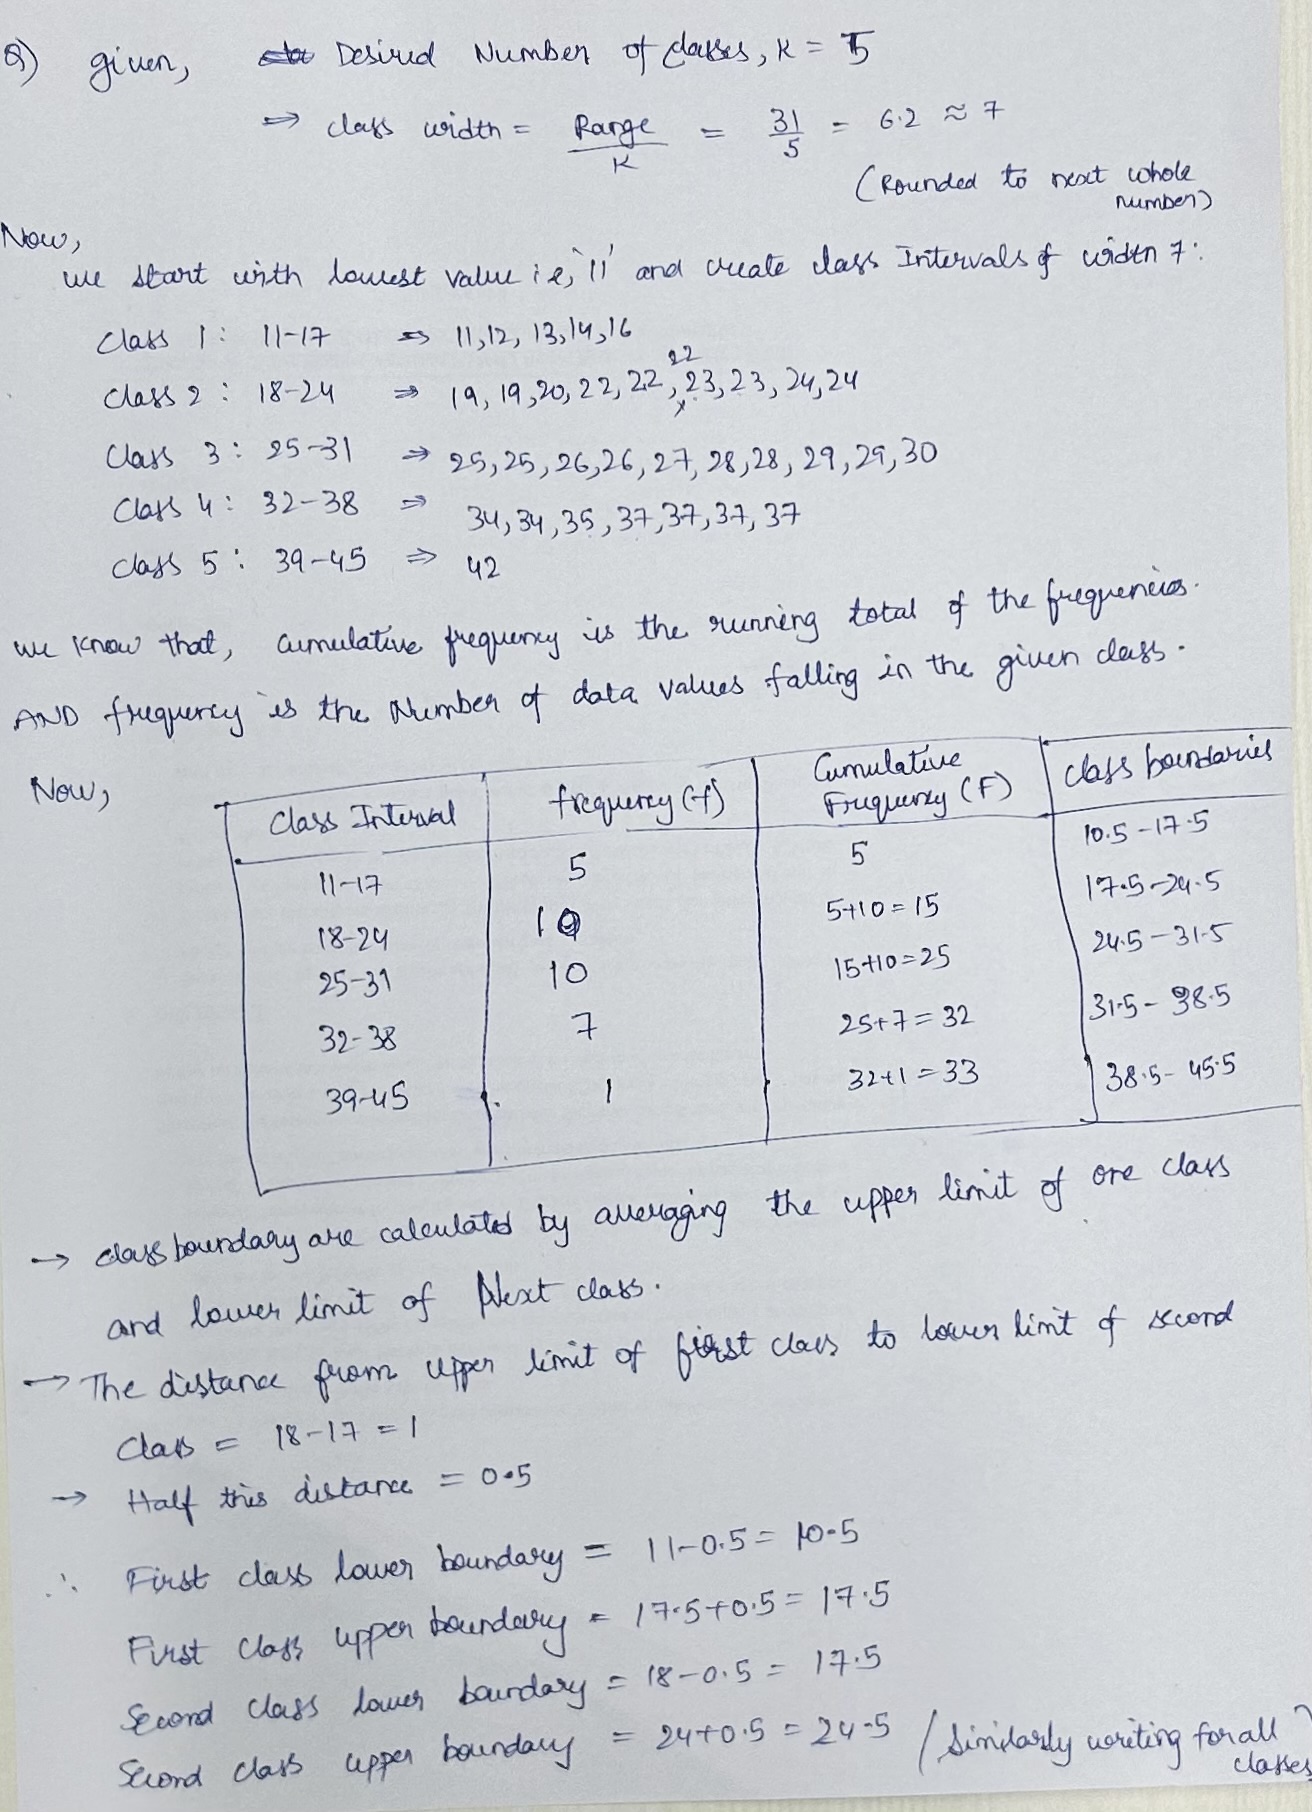 Q) given, Desired Number of classes, K = 5
⇒ class width = Range / K = 31 / 5 = 6.2 ≈ 7
(Rounded to next whole number)
Now,
we start with lowest value i.e, '11' and create class Intervals of width 7:
Class 1: 11-17 ⇒ 11,12, 13,14,16
Class 2: 18-24 ⇒ 19, 19,20, 22, 22, 22, 23, 23, 24, 24
Class 3: 25-31 ⇒ 25, 25, 26, 26, 27, 28, 28, 29, 29, 30
Class 4: 32-38 ⇒ 34, 34, 35, 37, 37, 37, 37
Class 5: 39-45 ⇒ 42
we know that, cumulative frequency is the running total of the frequencies.
AND frequency is the Number of data values falling in the given class.
Now,
Class Interval frequency (f) Cumulative Frequency (F) class boundaries
11-17 5 5 10.5-17.5
18-24 10 5+10=15 17.5-24.5
25-31 10 15+10=25 24.5-31.5
32-38 7 25+7=32 31.5-38.5
39-45 1 32+1=33 38.5-45.5
→ class boundary are calculated by averaging the upper limit of one class
and lower limit of Next class.
→ The distance from upper limit of first class to lower limit of second
Class = 18-17 = 1
→ Half this distance = 0.5
∴ First class lower boundary = 11-0.5 = 10.5
First class upper boundary = 17.5+0.5 = 17.5
Second class lower boundary = 18-0.5 = 17.5
Second class upper boundary = 24+0.5 = 24.5 (Similarly writing for all classes)